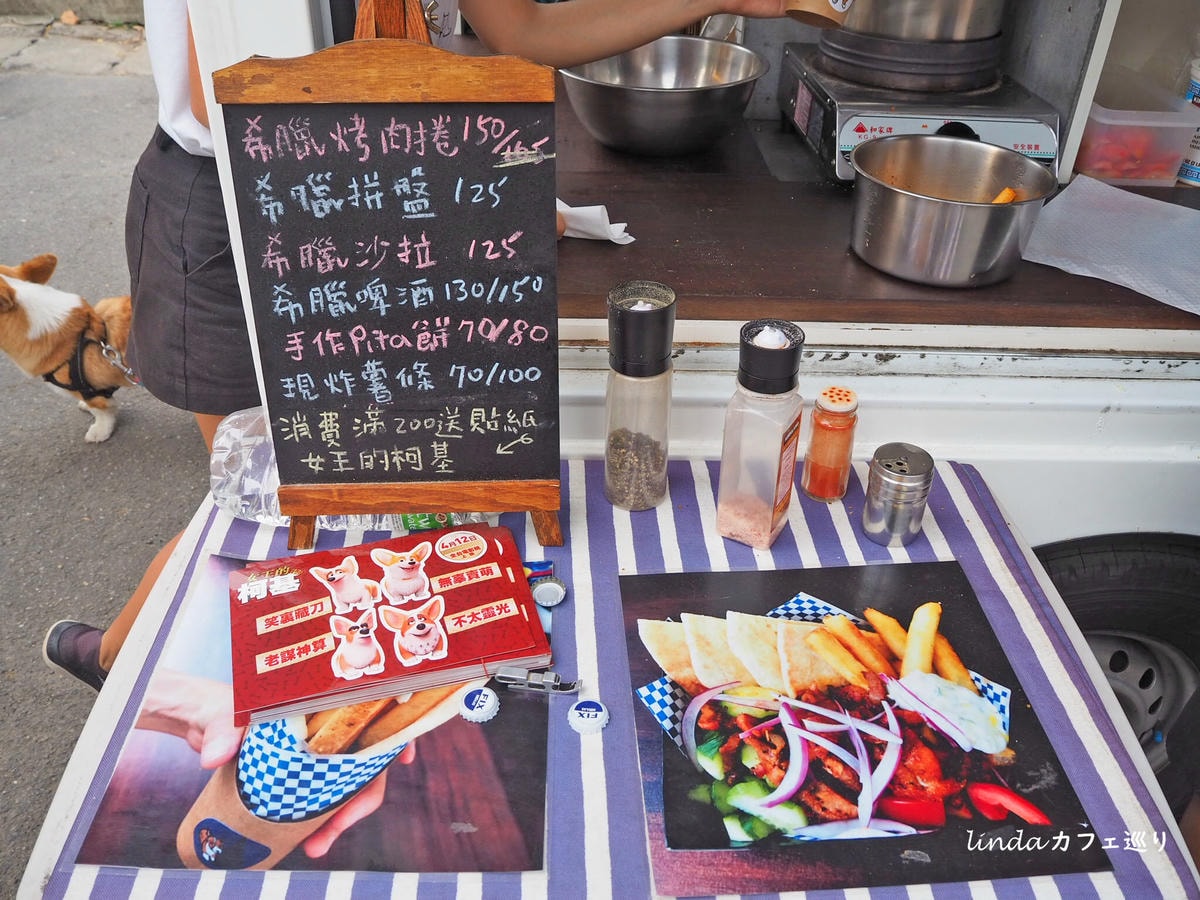 希臘烤肉捲150/165
希臘拼盤 125
希臘沙拉 125
希臘啤酒130/150
手作Pita餅70/80
現炸薯條 70/100
消費滿200送貼紙
女王的柯基
和家牌
安全裝置
女王的
柯基
4月12日
笑裏藏刀
無辜賣萌
老謀神算
不太靈光
FIX
FIX
lindaカフェ巡り